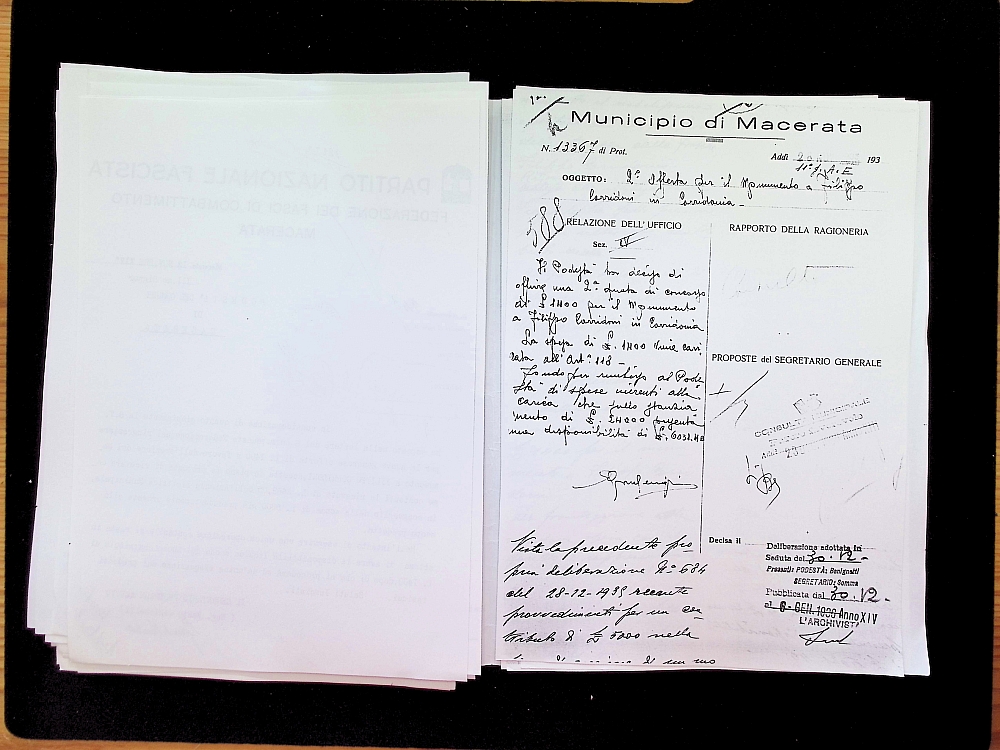 PARTITO NAZIONALE FASCISTA
FEDERAZIONE DEI FASCI DI COMBATTIMENTO
MACERATA
Municipio di Macerata
N. 13367 di Prot.
Addì 193
OGGETTO: 2ª Offerta per il Monumento a Filippo
Corridoni in Corridonia -
588
RELAZIONE DELL'UFFICIO
Sez. IV
Il Podestà ha deciso di
offrire una 2ª quota di concorso
di £ 1400 per il Monumento
a Filippo Corridoni in Corridonia
La spesa di £. 1400 viene cari
cata all'Art.° 118 -
Fondo per rimborso al Pode
stà di spese inerenti alla
carica che sullo stanzia
mento di £. 24000 presenta
una disponibilità di £. 6038.40
RAPPORTO DELLA RAGIONERIA
PROPOSTE del SEGRETARIO GENERALE
CONSULTA MUNICIPALE
Vista la precedente pro
pria deliberazione N° 684
del 28-12-1935 recante
provvedimenti per un con
tributo di £ 5000 nella
Decisa il
Deliberazione adottata in
Seduta del 30. 12 -
Presenti: PODESTÀ: Benignetti
SEGRETARIO: Somma
Pubblicata dal 30. 12 -
al 6 - GEN. 1936 Anno XIV
L'ARCHIVISTA